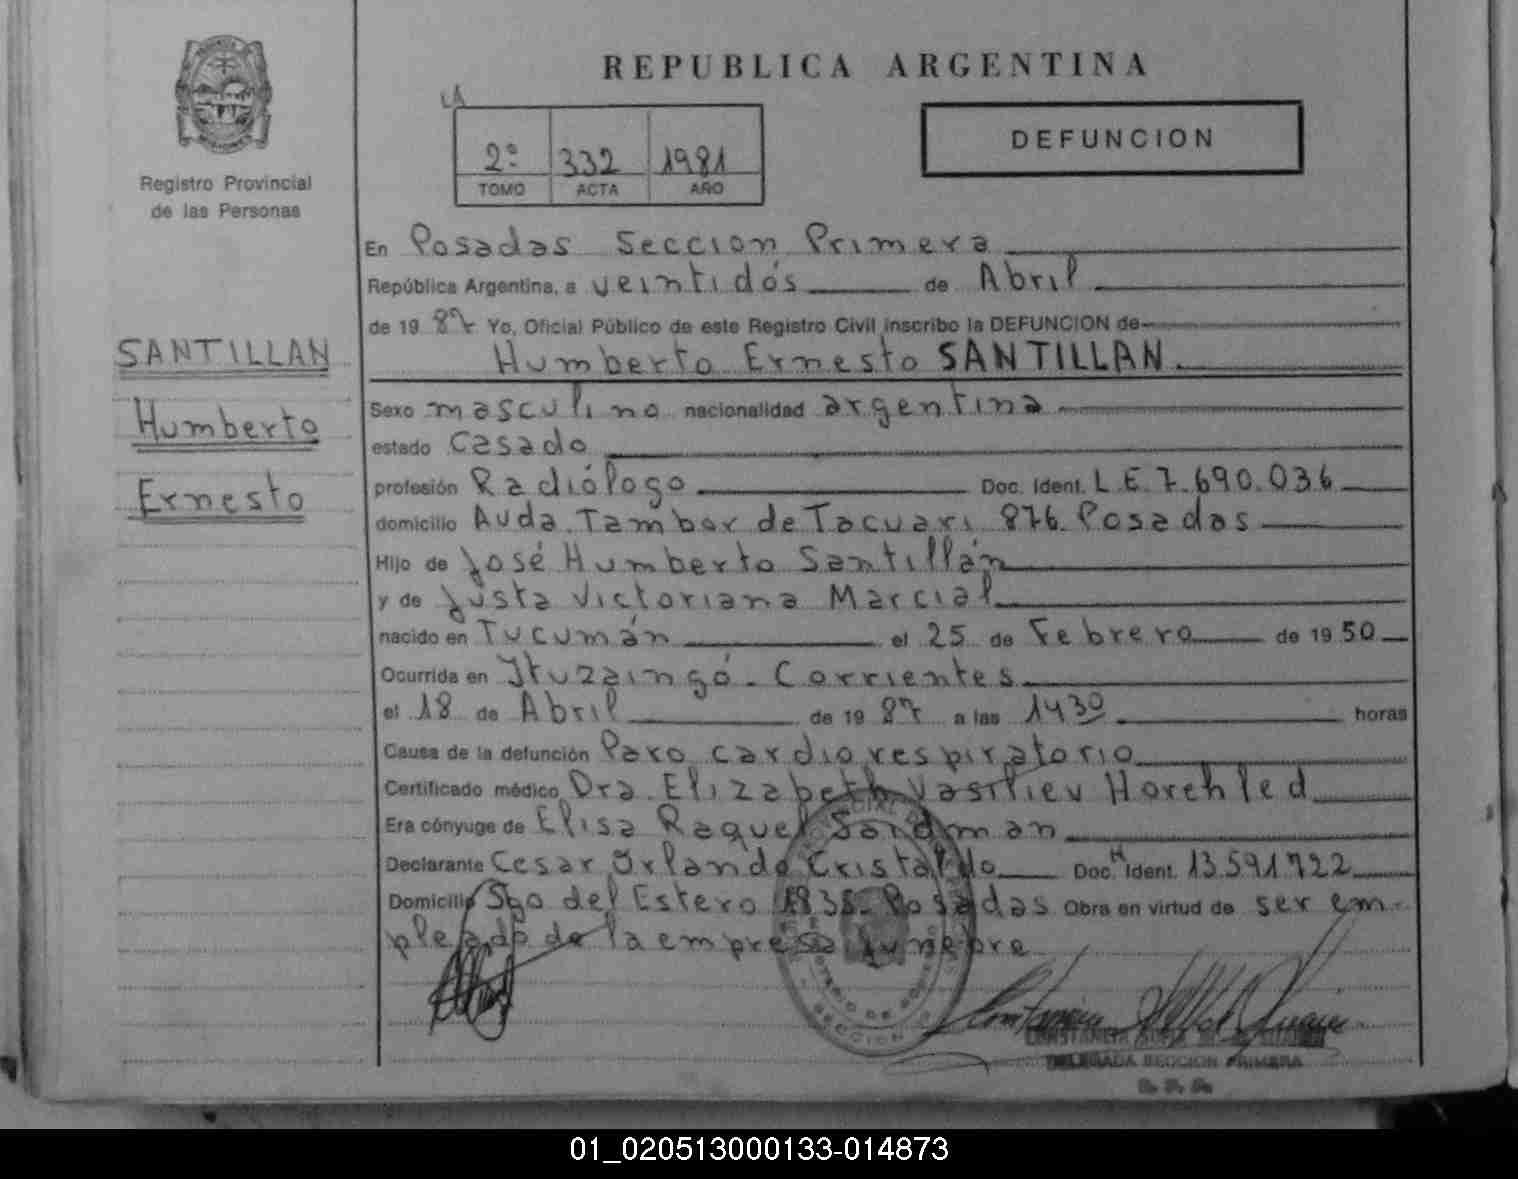 REPUBLICA ARGENTINA
LA
2º 332 1981
TOMO ACTA AÑO
DEFUNCION
Registro Provincial
de las Personas
SANTILLAN
Humberto
Ernesto
En Posadas Seccion Primera
República Argentina, a veintidós de Abril
de 19 87 Yo, Oficial Público de este Registro Civil inscribo la DEFUNCION de
Humberto Ernesto SANTILLAN.
Sexo masculino nacionalidad argentina
estado casado
profesión Radiólogo Doc. Ident. L.E. 7.690.036
domicilio Avda. Tambor de Tacuari 876. Posadas
Hijo de José Humberto Santillán
y de Justa Victoriana Marcial
nacido en Tucumán el 25 de Febrero de 19 50
Ocurrida en Ituzaingó. Corrientes
el 18 de Abril de 19 87 a las 1430 horas
Causa de la defunción Paro cardiorespiratorio
Certificado médico Dra. Elizabeth Vasiliev Horehled
Era cónyuge de Elisa Raquel Sandman
Declarante Cesar Orlando Cristaldo Doc. Ident. 13.591.722
Domicilio Sgo del Estero 1838. Posadas Obra en virtud de ser em-
pleado de la empresa funebre
SECCION
DELEGADA SECCION PRIMERA
01_020513000133-014873